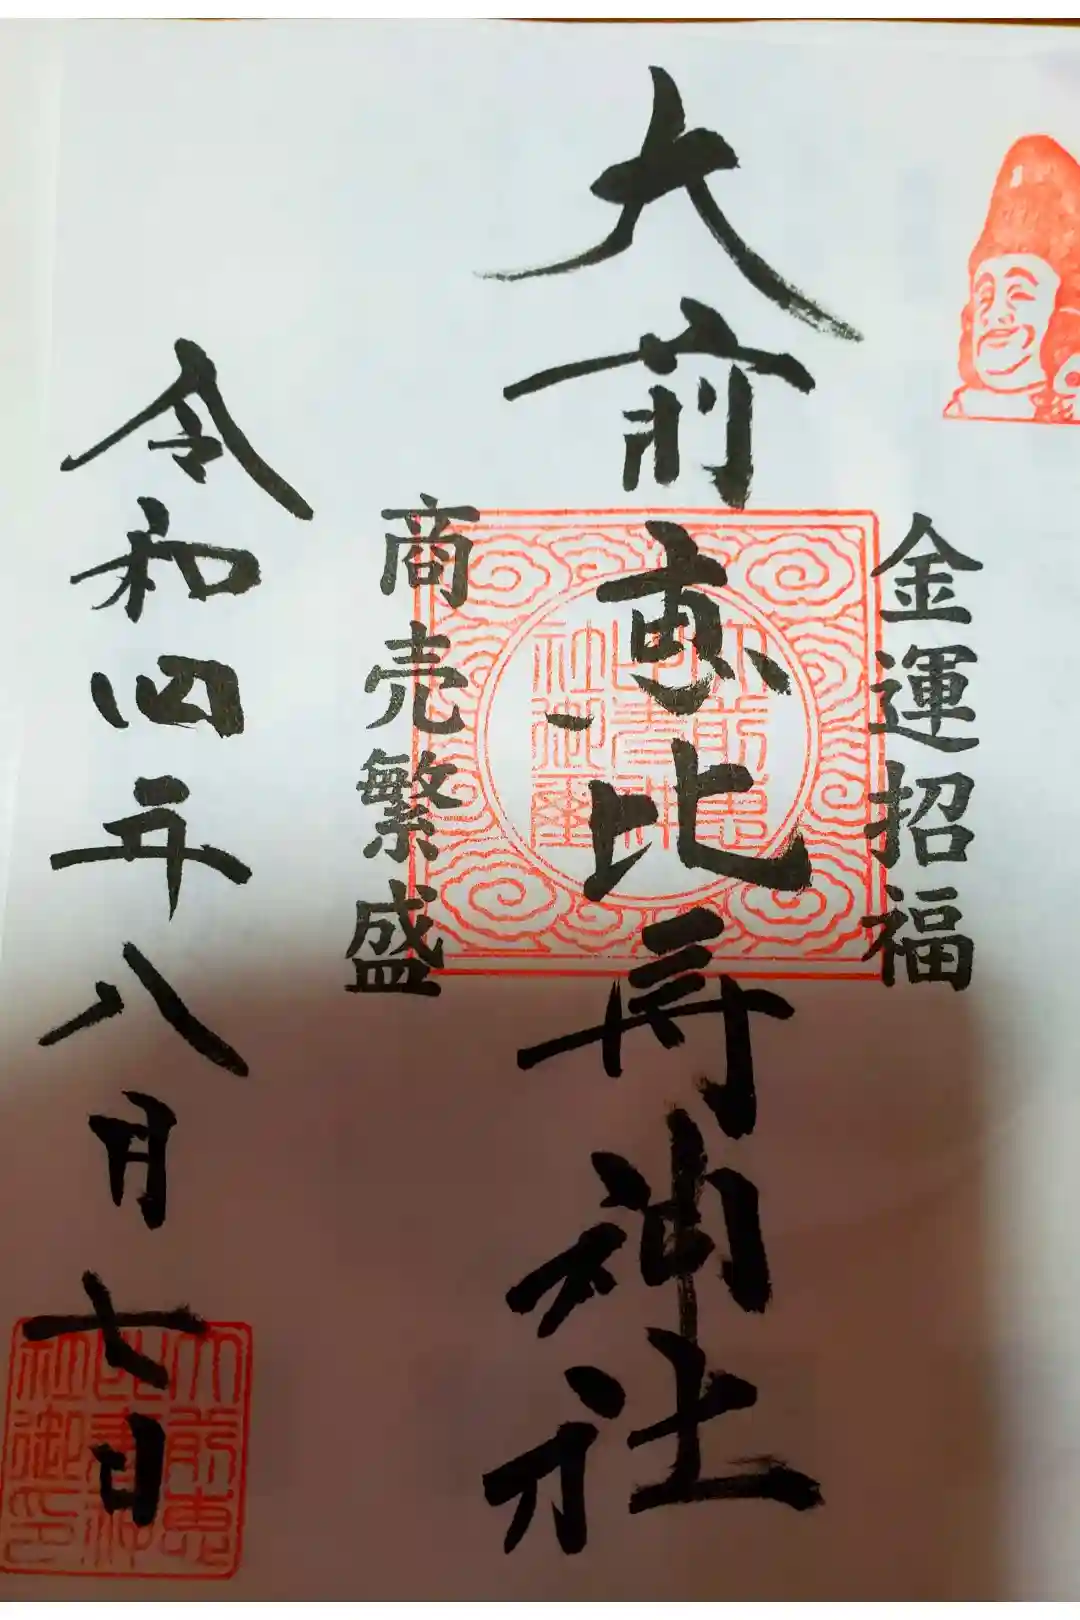 金運招福
大前恵比寿神社
商売繁盛
令和四年八月七日
大前恵
比寿神
社御璽
大前恵
比寿神
社御印